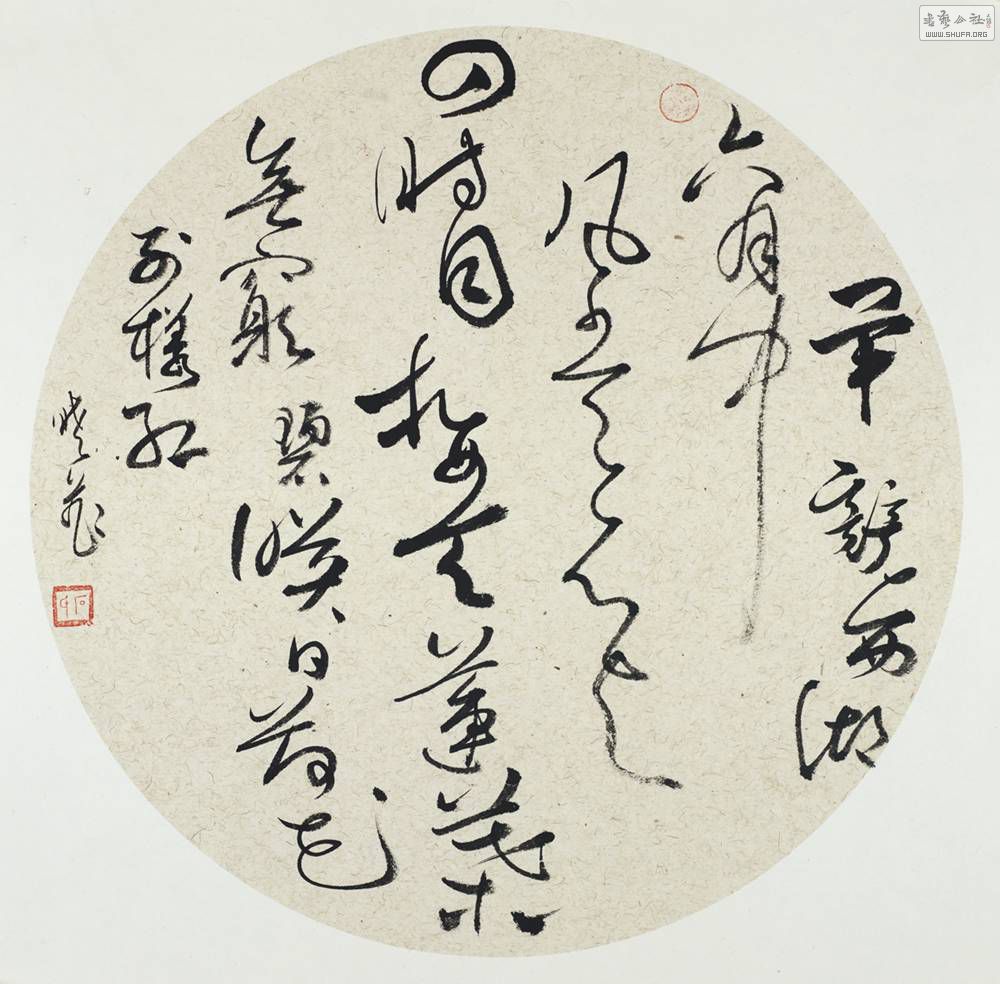 書藝公社
WWW.SHUFA.ORG
畢竟西湖
六月中
风光不与
四時同接天蓮葉
無窮碧映日荷花
别樣红